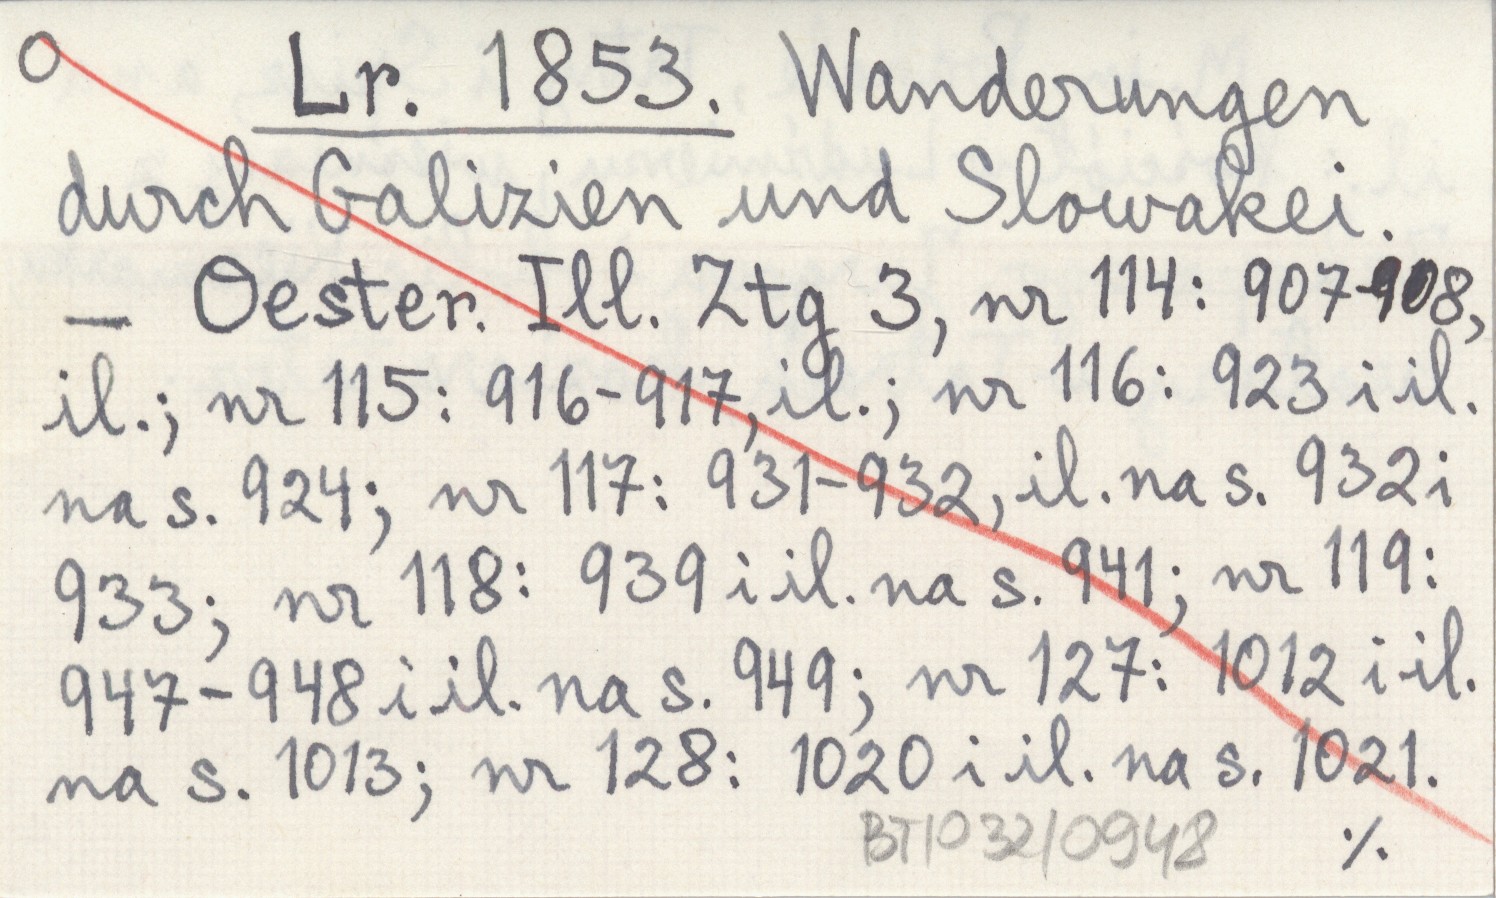 O Lr. 1853. Wanderungen
durch Galizien und Slowakei.
— Oester. Ill. Ztg 3, nr 114: 907-908,
il.; nr 115: 916-917, il.; nr 116: 923 i il.
na s. 924; nr 117: 931-932, il. na s. 932 i
933; nr 118: 939 i il. na s. 941; nr 119:
947-948 i il. na s. 949; nr 127: 1012 i il.
na s. 1013; nr 128: 1020 i il. na s. 1021.
BT/032/0948 ./.